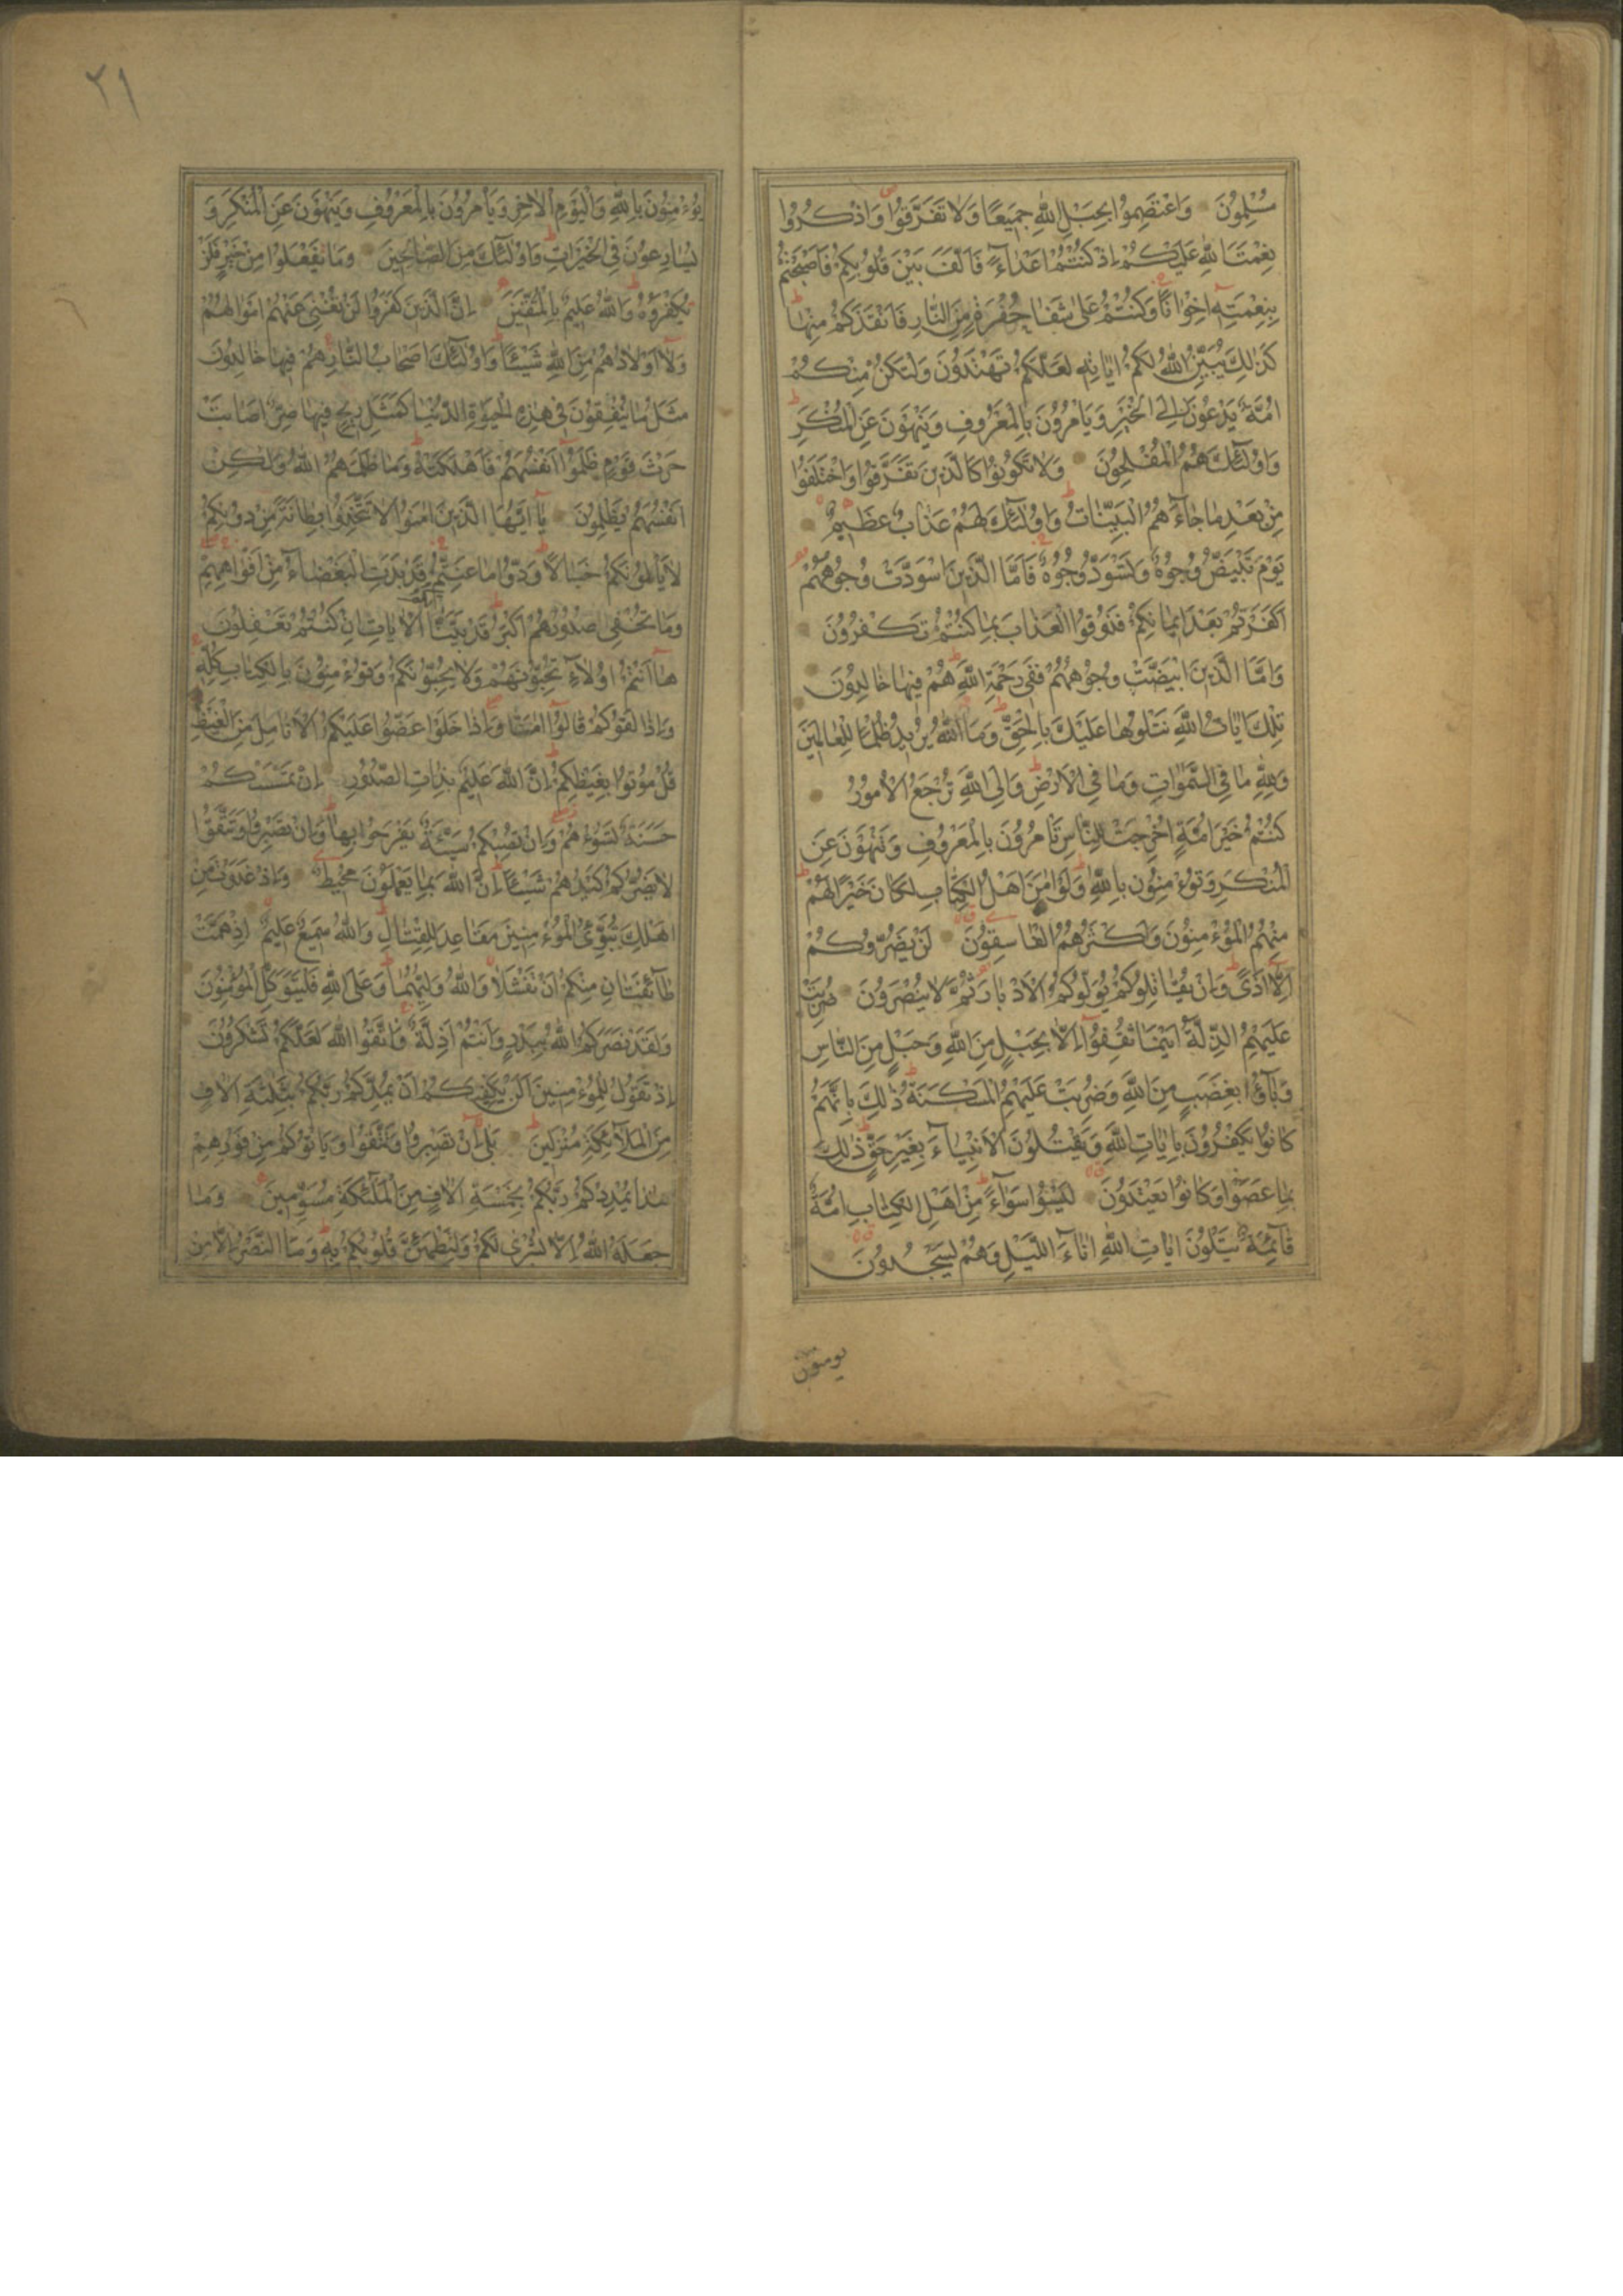 مُسْلِمُونَ وَاعْتَصِمُوا بِحَبْلِ اللّٰهِ جَمِيعًا وَلَا تَفَرَّقُوا وَاذْكُرُوا
نِعْمَتَ اللّٰهِ عَلَيْكُمْ اِذْ كُنْتُمْ اَعْدَاءً فَاَلَّفَ بَيْنَ قُلُوبِكُمْ فَاَصْبَحْتُمْ
بِنِعْمَتِهِ اِخْوَانًا وَكُنْتُمْ عَلٰى شَفَا حُفْرَةٍ مِنَ النَّارِ فَاَنْقَذَكُمْ مِنْهَا
كَذٰلِكَ يُبَيِّنُ اللّٰهُ لَكُمْ اٰيَاتِهِ لَعَلَّكُمْ تَهْتَدُونَ وَلْتَكُنْ مِنْكُمْ
اُمَّةٌ يَدْعُونَ اِلَى الْخَيْرِ وَيَاْمُرُونَ بِالْمَعْرُوفِ وَيَنْهَوْنَ عَنِ الْمُنْكَرِ
وَاُولٰئِكَ هُمُ الْمُفْلِحُونَ وَلَا تَكُونُوا كَالَّذِينَ تَفَرَّقُوا وَاخْتَلَفُوا
مِنْ بَعْدِ مَا جَاءَهُمُ الْبَيِّنَاتُ وَاُولٰئِكَ لَهُمْ عَذَابٌ عَظِيمٌ
يَوْمَ تَبْيَضُّ وُجُوهٌ وَتَسْوَدُّ وُجُوهٌ فَاَمَّا الَّذِينَ اسْوَدَّتْ وُجُوهُهُمْ
اَكَفَرْتُمْ بَعْدَ اِيمَانِكُمْ فَذُوقُوا الْعَذَابَ بِمَا كُنْتُمْ تَكْفُرُونَ
وَاَمَّا الَّذِينَ ابْيَضَّتْ وُجُوهُهُمْ فَفِي رَحْمَةِ اللّٰهِ هُمْ فِيهَا خَالِدُونَ
تِلْكَ اٰيَاتُ اللّٰهِ نَتْلُوهَا عَلَيْكَ بِالْحَقِّ وَمَا اللّٰهُ يُرِيدُ ظُلْمًا لِلْعَالَمِينَ
وَلِلّٰهِ مَا فِي السَّمٰوَاتِ وَمَا فِي الْاَرْضِ وَاِلَى اللّٰهِ تُرْجَعُ الْاُمُورُ
كُنْتُمْ خَيْرَ اُمَّةٍ اُخْرِجَتْ لِلنَّاسِ تَاْمُرُونَ بِالْمَعْرُوفِ وَتَنْهَوْنَ عَنِ
الْمُنْكَرِ وَتُؤْمِنُونَ بِاللّٰهِ وَلَوْ اٰمَنَ اَهْلُ الْكِتَابِ لَكَانَ خَيْرًا لَهُمْ
مِنْهُمُ الْمُؤْمِنُونَ وَاَكْثَرُهُمُ الْفَاسِقُونَ لَنْ يَضُرُّوكُمْ
اِلَّا اَذًى وَاِنْ يُقَاتِلُوكُمْ يُوَلُّوكُمُ الْاَدْبَارَ ثُمَّ لَا يُنْصَرُونَ ضُرِبَتْ
عَلَيْهِمُ الذِّلَّةُ اَيْنَمَا ثُقِفُوا اِلَّا بِحَبْلٍ مِنَ اللّٰهِ وَحَبْلٍ مِنَ النَّاسِ
وَبَاؤُا بِغَضَبٍ مِنَ اللّٰهِ وَضُرِبَتْ عَلَيْهِمُ الْمَسْكَنَةُ ذٰلِكَ بِاَنَّهُمْ
كَانُوا يَكْفُرُونَ بِاٰيَاتِ اللّٰهِ وَيَقْتُلُونَ الْاَنْبِيَاءَ بِغَيْرِ حَقٍّ ذٰلِكَ
بِمَا عَصَوْا وَكَانُوا يَعْتَدُونَ لَيْسُوا سَوَاءً مِنْ اَهْلِ الْكِتَابِ اُمَّةٌ
قَائِمَةٌ يَتْلُونَ اٰيَاتِ اللّٰهِ اٰنَاءَ اللَّيْلِ وَهُمْ يَسْجُدُونَ
يومنون
٢١
يُؤْمِنُونَ بِاللّٰهِ وَالْيَوْمِ الْاٰخِرِ وَيَاْمُرُونَ بِالْمَعْرُوفِ وَيَنْهَوْنَ عَنِ الْمُنْكَرِ وَ
يُسَارِعُونَ فِي الْخَيْرَاتِ وَاُولٰئِكَ مِنَ الصَّالِحِينَ وَمَا تَفْعَلُوا مِنْ خَيْرٍ فَلَنْ
تُكْفَرُوهُ وَاللّٰهُ عَلِيمٌ بِالْمُتَّقِينَ اِنَّ الَّذِينَ كَفَرُوا لَنْ تُغْنِيَ عَنْهُمْ اَمْوَالُهُمْ
وَلَا اَوْلَادُهُمْ مِنَ اللّٰهِ شَيْئًا وَاُولٰئِكَ اَصْحَابُ النَّارِ هُمْ فِيهَا خَالِدُونَ
مَثَلُ مَا يُنْفِقُونَ فِي هٰذِهِ الْحَيٰوةِ الدُّنْيَا كَمَثَلِ رِيحٍ فِيهَا صِرٌّ اَصَابَتْ
حَرْثَ قَوْمٍ ظَلَمُوا اَنْفُسَهُمْ فَاَهْلَكَتْهُ وَمَا ظَلَمَهُمُ اللّٰهُ وَلٰكِنْ
اَنْفُسَهُمْ يَظْلِمُونَ يَا اَيُّهَا الَّذِينَ اٰمَنُوا لَا تَتَّخِذُوا بِطَانَةً مِنْ دُونِكُمْ
لَا يَاْلُونَكُمْ خَبَالًا وَدُّوا مَا عَنِتُّمْ قَدْ بَدَتِ الْبَغْضَاءُ مِنْ اَفْوَاهِهِمْ
وَمَا تُخْفِي صُدُورُهُمْ اَكْبَرُ قَدْ بَيَّنَّا لَكُمُ الْاٰيَاتِ اِنْ كُنْتُمْ تَعْقِلُونَ
هَا اَنْتُمْ اُولَاءِ تُحِبُّونَهُمْ وَلَا يُحِبُّونَكُمْ وَتُؤْمِنُونَ بِالْكِتَابِ كُلِّهِ
وَاِذَا لَقُوكُمْ قَالُوا اٰمَنَّا وَاِذَا خَلَوْا عَضُّوا عَلَيْكُمُ الْاَنَامِلَ مِنَ الْغَيْظِ
قُلْ مُوتُوا بِغَيْظِكُمْ اِنَّ اللّٰهَ عَلِيمٌ بِذَاتِ الصُّدُورِ اِنْ تَمْسَسْكُمْ
حَسَنَةٌ تَسُؤْهُمْ وَاِنْ تُصِبْكُمْ سَيِّئَةٌ يَفْرَحُوا بِهَا وَاِنْ تَصْبِرُوا وَتَتَّقُوا
لَا يَضُرُّكُمْ كَيْدُهُمْ شَيْئًا اِنَّ اللّٰهَ بِمَا يَعْمَلُونَ مُحِيطٌ وَاِذْ غَدَوْتَ مِنْ
اَهْلِكَ تُبَوِّئُ الْمُؤْمِنِينَ مَقَاعِدَ لِلْقِتَالِ وَاللّٰهُ سَمِيعٌ عَلِيمٌ اِذْ هَمَّتْ
طَائِفَتَانِ مِنْكُمْ اَنْ تَفْشَلَا وَاللّٰهُ وَلِيُّهُمَا وَعَلَى اللّٰهِ فَلْيَتَوَكَّلِ الْمُؤْمِنُونَ
وَلَقَدْ نَصَرَكُمُ اللّٰهُ بِبَدْرٍ وَاَنْتُمْ اَذِلَّةٌ فَاتَّقُوا اللّٰهَ لَعَلَّكُمْ تَشْكُرُونَ
اِذْ تَقُولُ لِلْمُؤْمِنِينَ اَلَنْ يَكْفِيَكُمْ اَنْ يُمِدَّكُمْ رَبُّكُمْ بِثَلٰثَةِ اٰلَافٍ
مِنَ الْمَلَائِكَةِ مُنْزَلِينَ بَلٰى اِنْ تَصْبِرُوا وَتَتَّقُوا وَيَاْتُوكُمْ مِنْ فَوْرِهِمْ
هٰذَا يُمْدِدْكُمْ رَبُّكُمْ بِخَمْسَةِ اٰلَافٍ مِنَ الْمَلٰئِكَةِ مُسَوِّمِينَ وَمَا
جَعَلَهُ اللّٰهُ اِلَّا بُشْرٰى لَكُمْ وَلِتَطْمَئِنَّ قُلُوبُكُمْ بِهِ وَمَا النَّصْرُ اِلَّا مِنْ